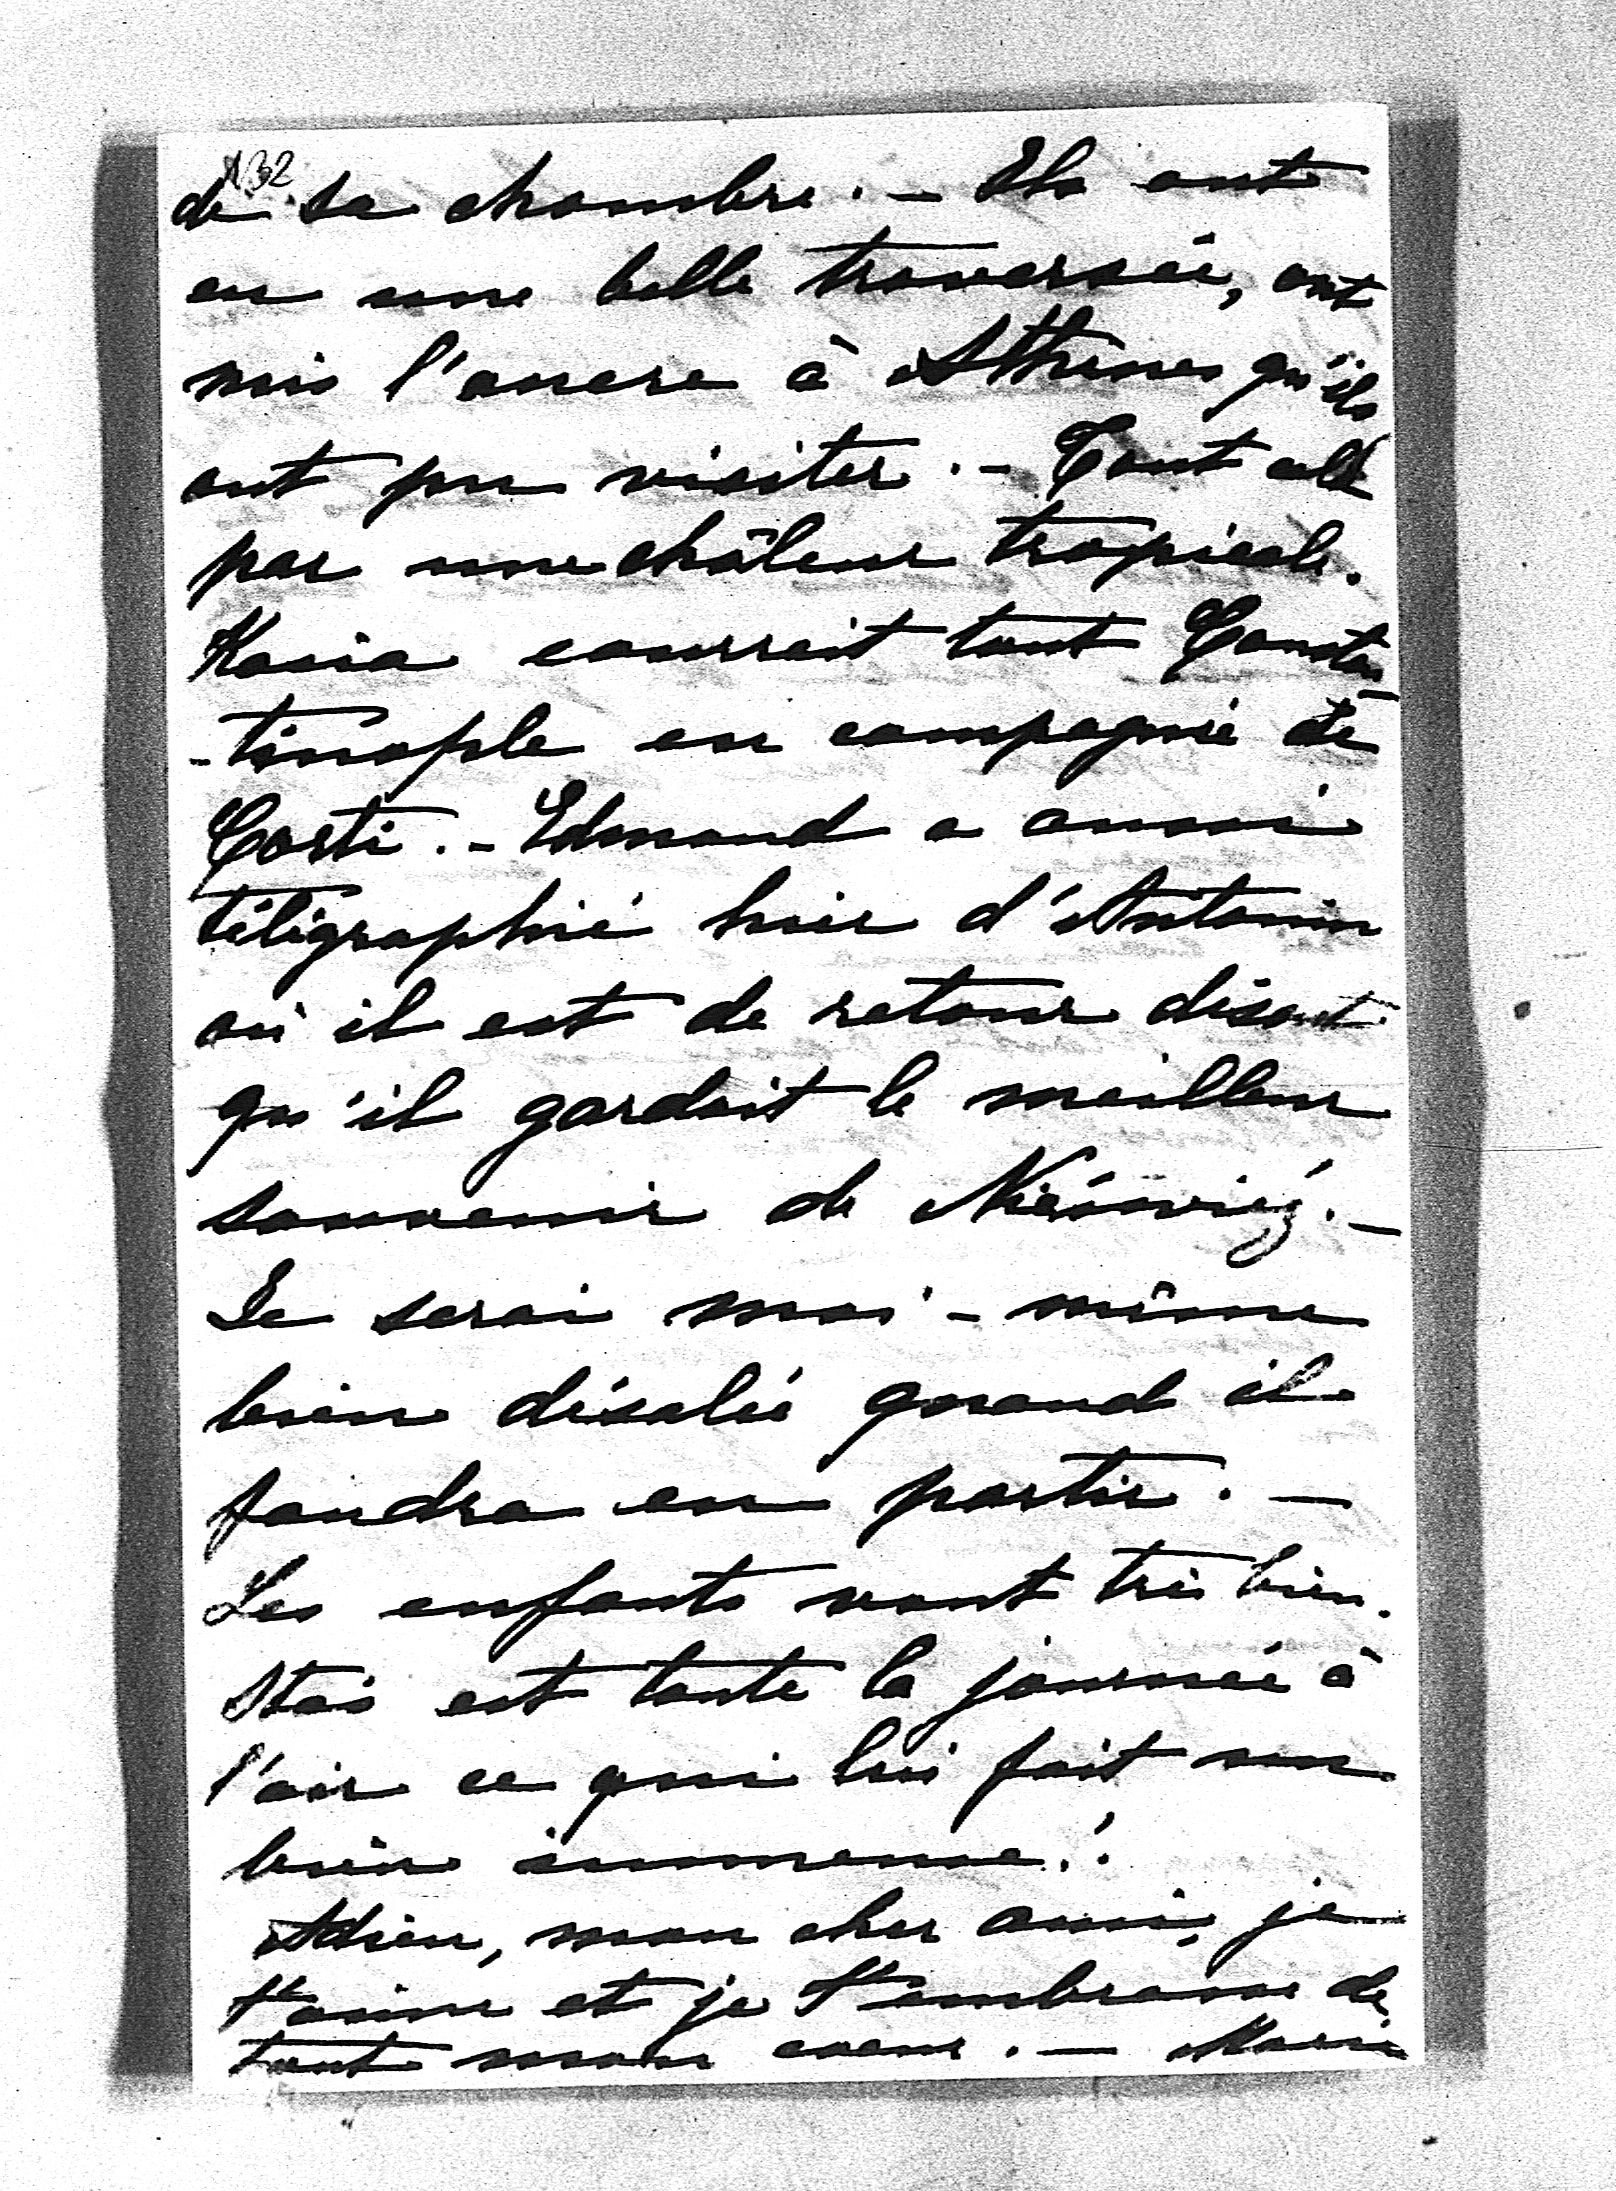 132
de sa chambre. - Ils ont
eu une belle traversée, ont
mis l'ancre à Athènes qu'ils
ont pu visiter. - Tout cela
par une châleur tropicale.
Kasia courrait tout Constan
-tinople en compagnie de
Corti. - Edmond a aussi
télégraphié hier d'Antonin
où il est de retour disant
qu'il gardait le meilleur
souvenir de Nieświéż. -
Je serai moi-même
bien désolée quand il
faudra en partir. -
Les enfants vont très bien.
Staś est toute la journée à
l'air ce qui lui fait un
bien immense!
Adieu, mon cher ami, je
t'aime et je t'embrasse de
tout mon coeur. - Marie